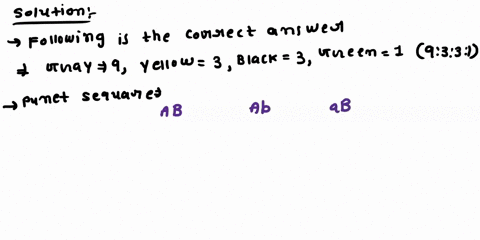 Solution:-
→ Following is the correct answer
⇒ Gray → 9, Yellow = 3, Black = 3, Green = 1 (9:3:3:1)
→ Punet sequares
AB Ab aB